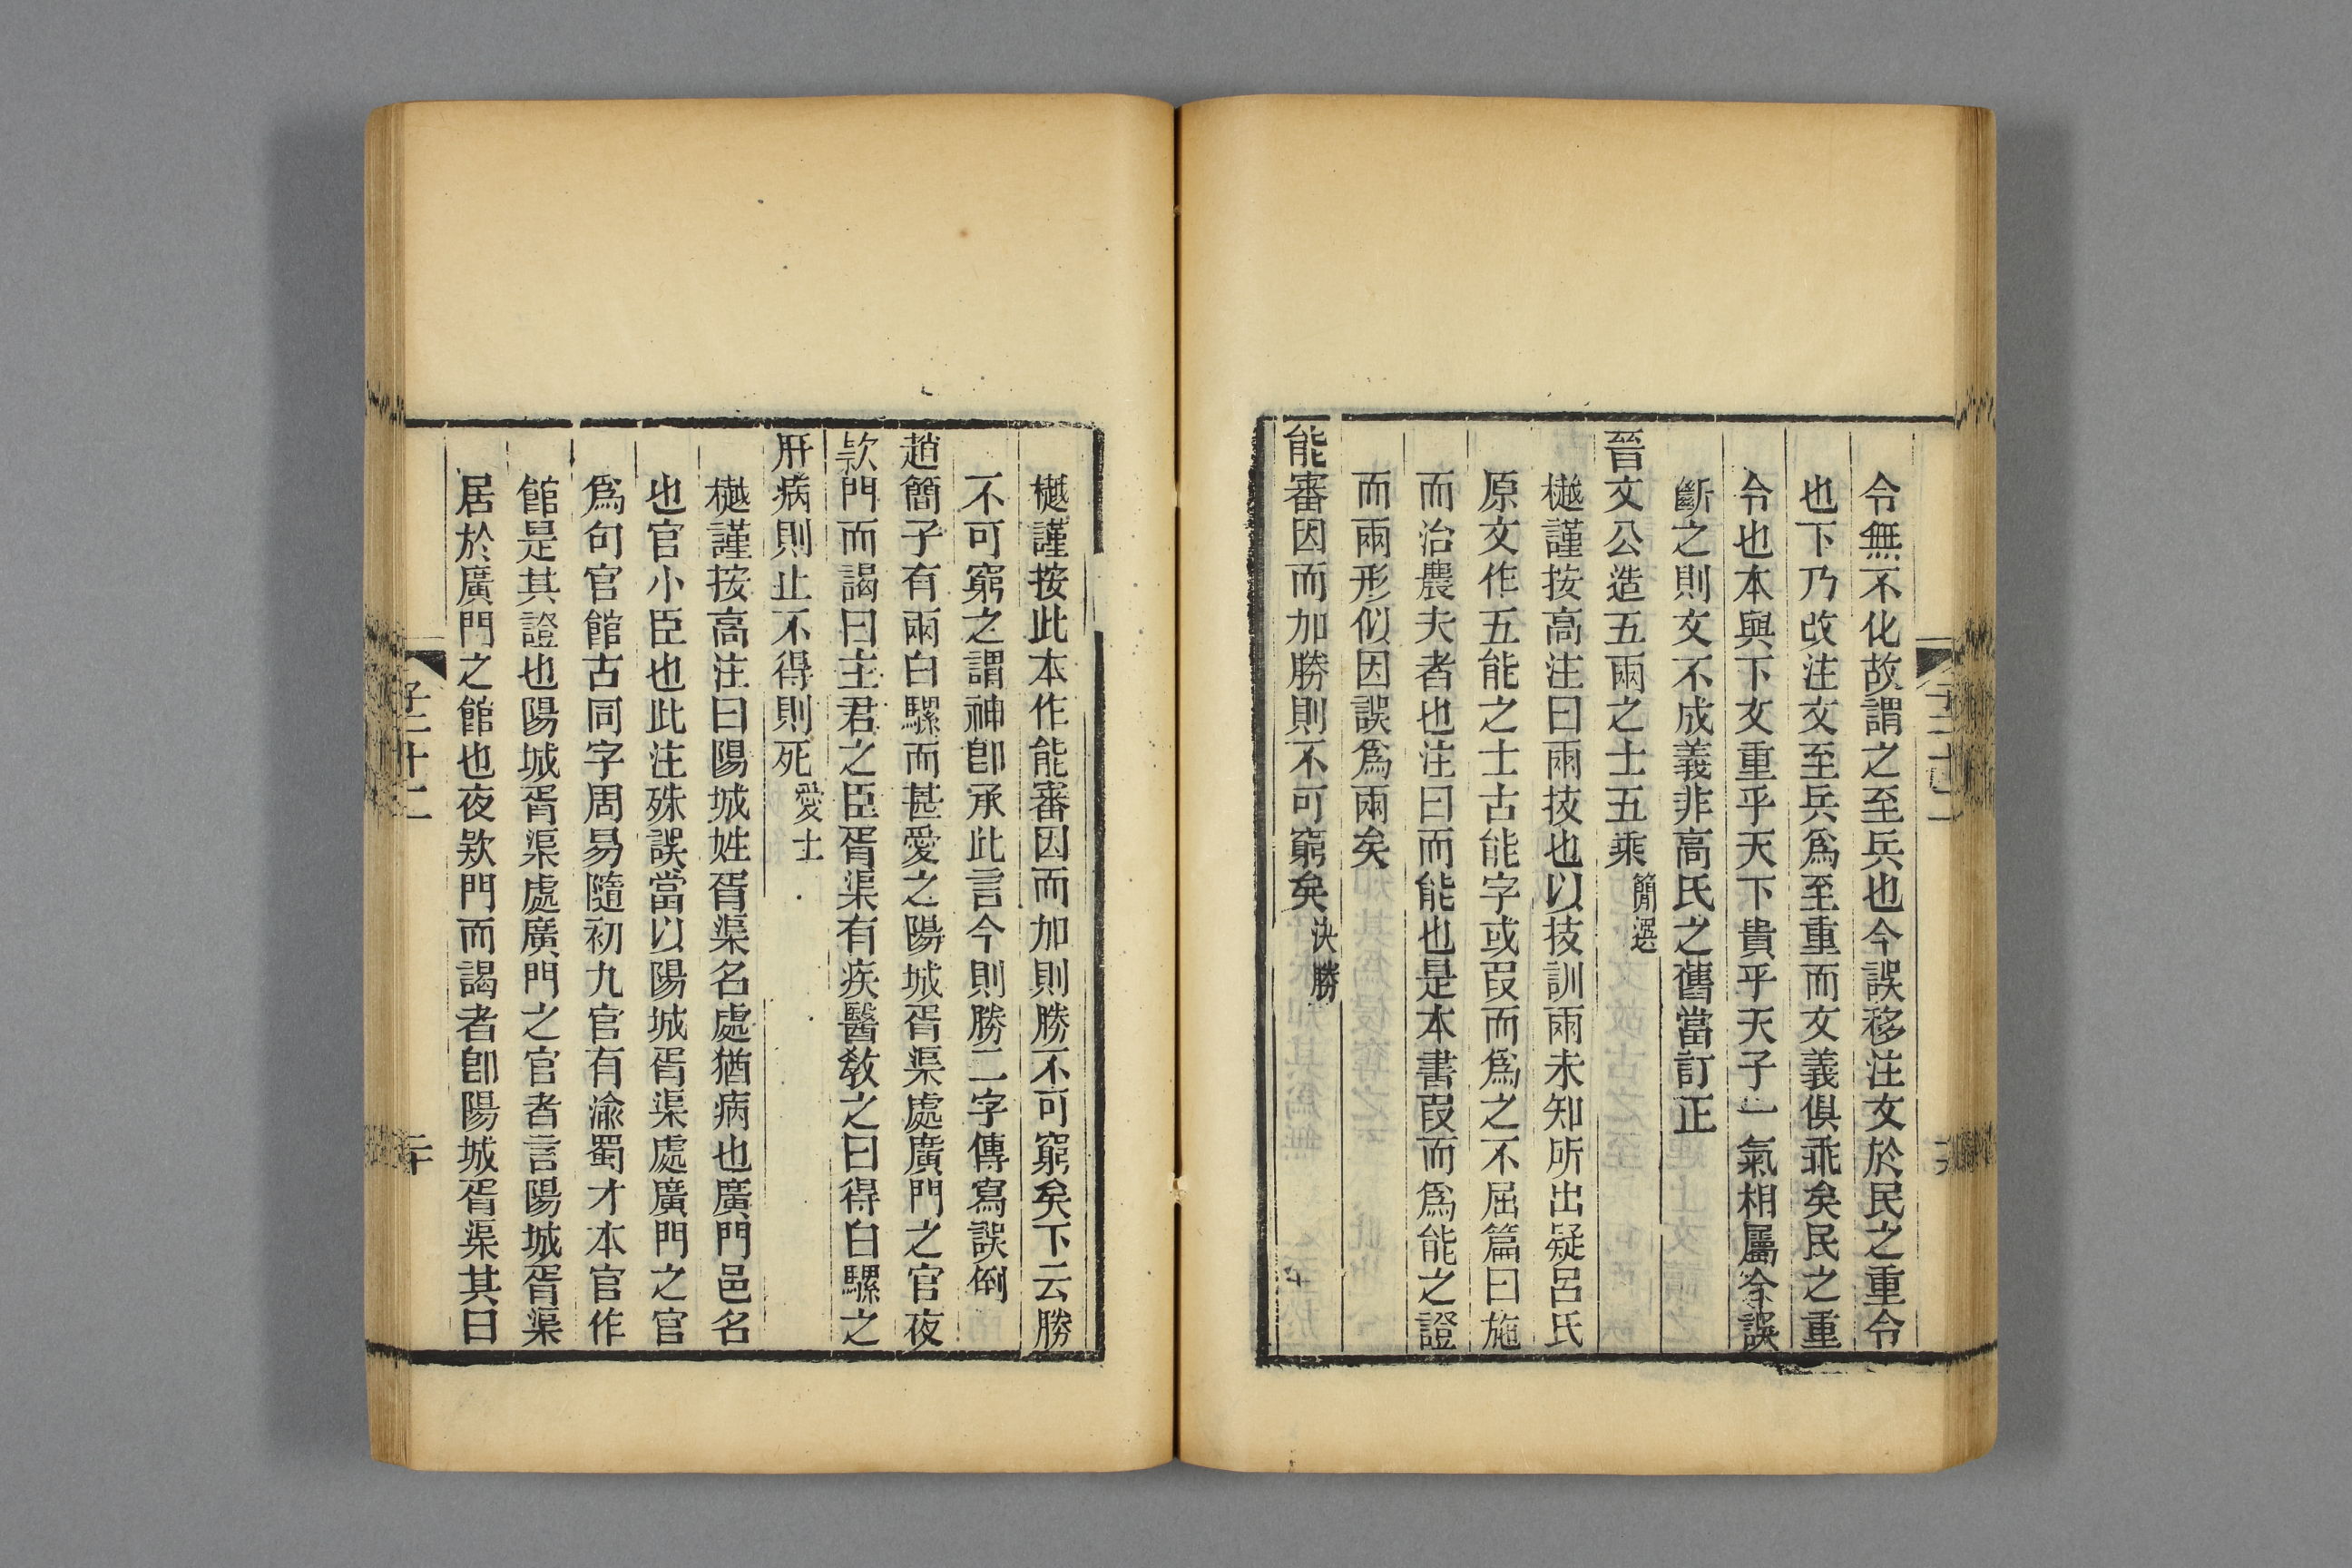 令無不化故謂之至兵也今誤移注文於民之重令
也下乃改注文至兵爲至重而文義俱乖矣民之重
令也本與下文重乎天下貴乎天子一氣相屬今誤
斷之則文不成義非高氏之舊當訂正
晉文公造五兩之士五乘簡選
樾謹按高注曰兩技也以技訓兩未知所出疑呂氏
原文作五能之士古能字或叚而爲之不屈篇曰施
而治農夫者也注曰而能也是本書叚而爲能之證
而兩形似因誤爲兩矣
能審因而加勝則不可窮矣決勝
樾謹按此本作能審因而加則勝不可窮矣下云勝
不可窮之謂神卽承此言今則勝二字傳寫誤倒
趙簡子有兩白騾而甚愛之陽城胥渠處廣門之官夜
款門而謁曰主君之臣胥渠有疾醫敎之曰得白騾之
肝病則止不得則死愛士
樾謹按高注曰陽城姓胥渠名處猶病也廣門邑名
也官小臣也此注殊誤當以陽城胥渠處廣門之官
爲句官館古同字周易隨初九官有渝蜀才本官作
館是其證也陽城胥渠處廣門之官者言陽城胥渠
居於廣門之館也夜款門而謁者卽陽城胥渠其曰
子二十二
二十